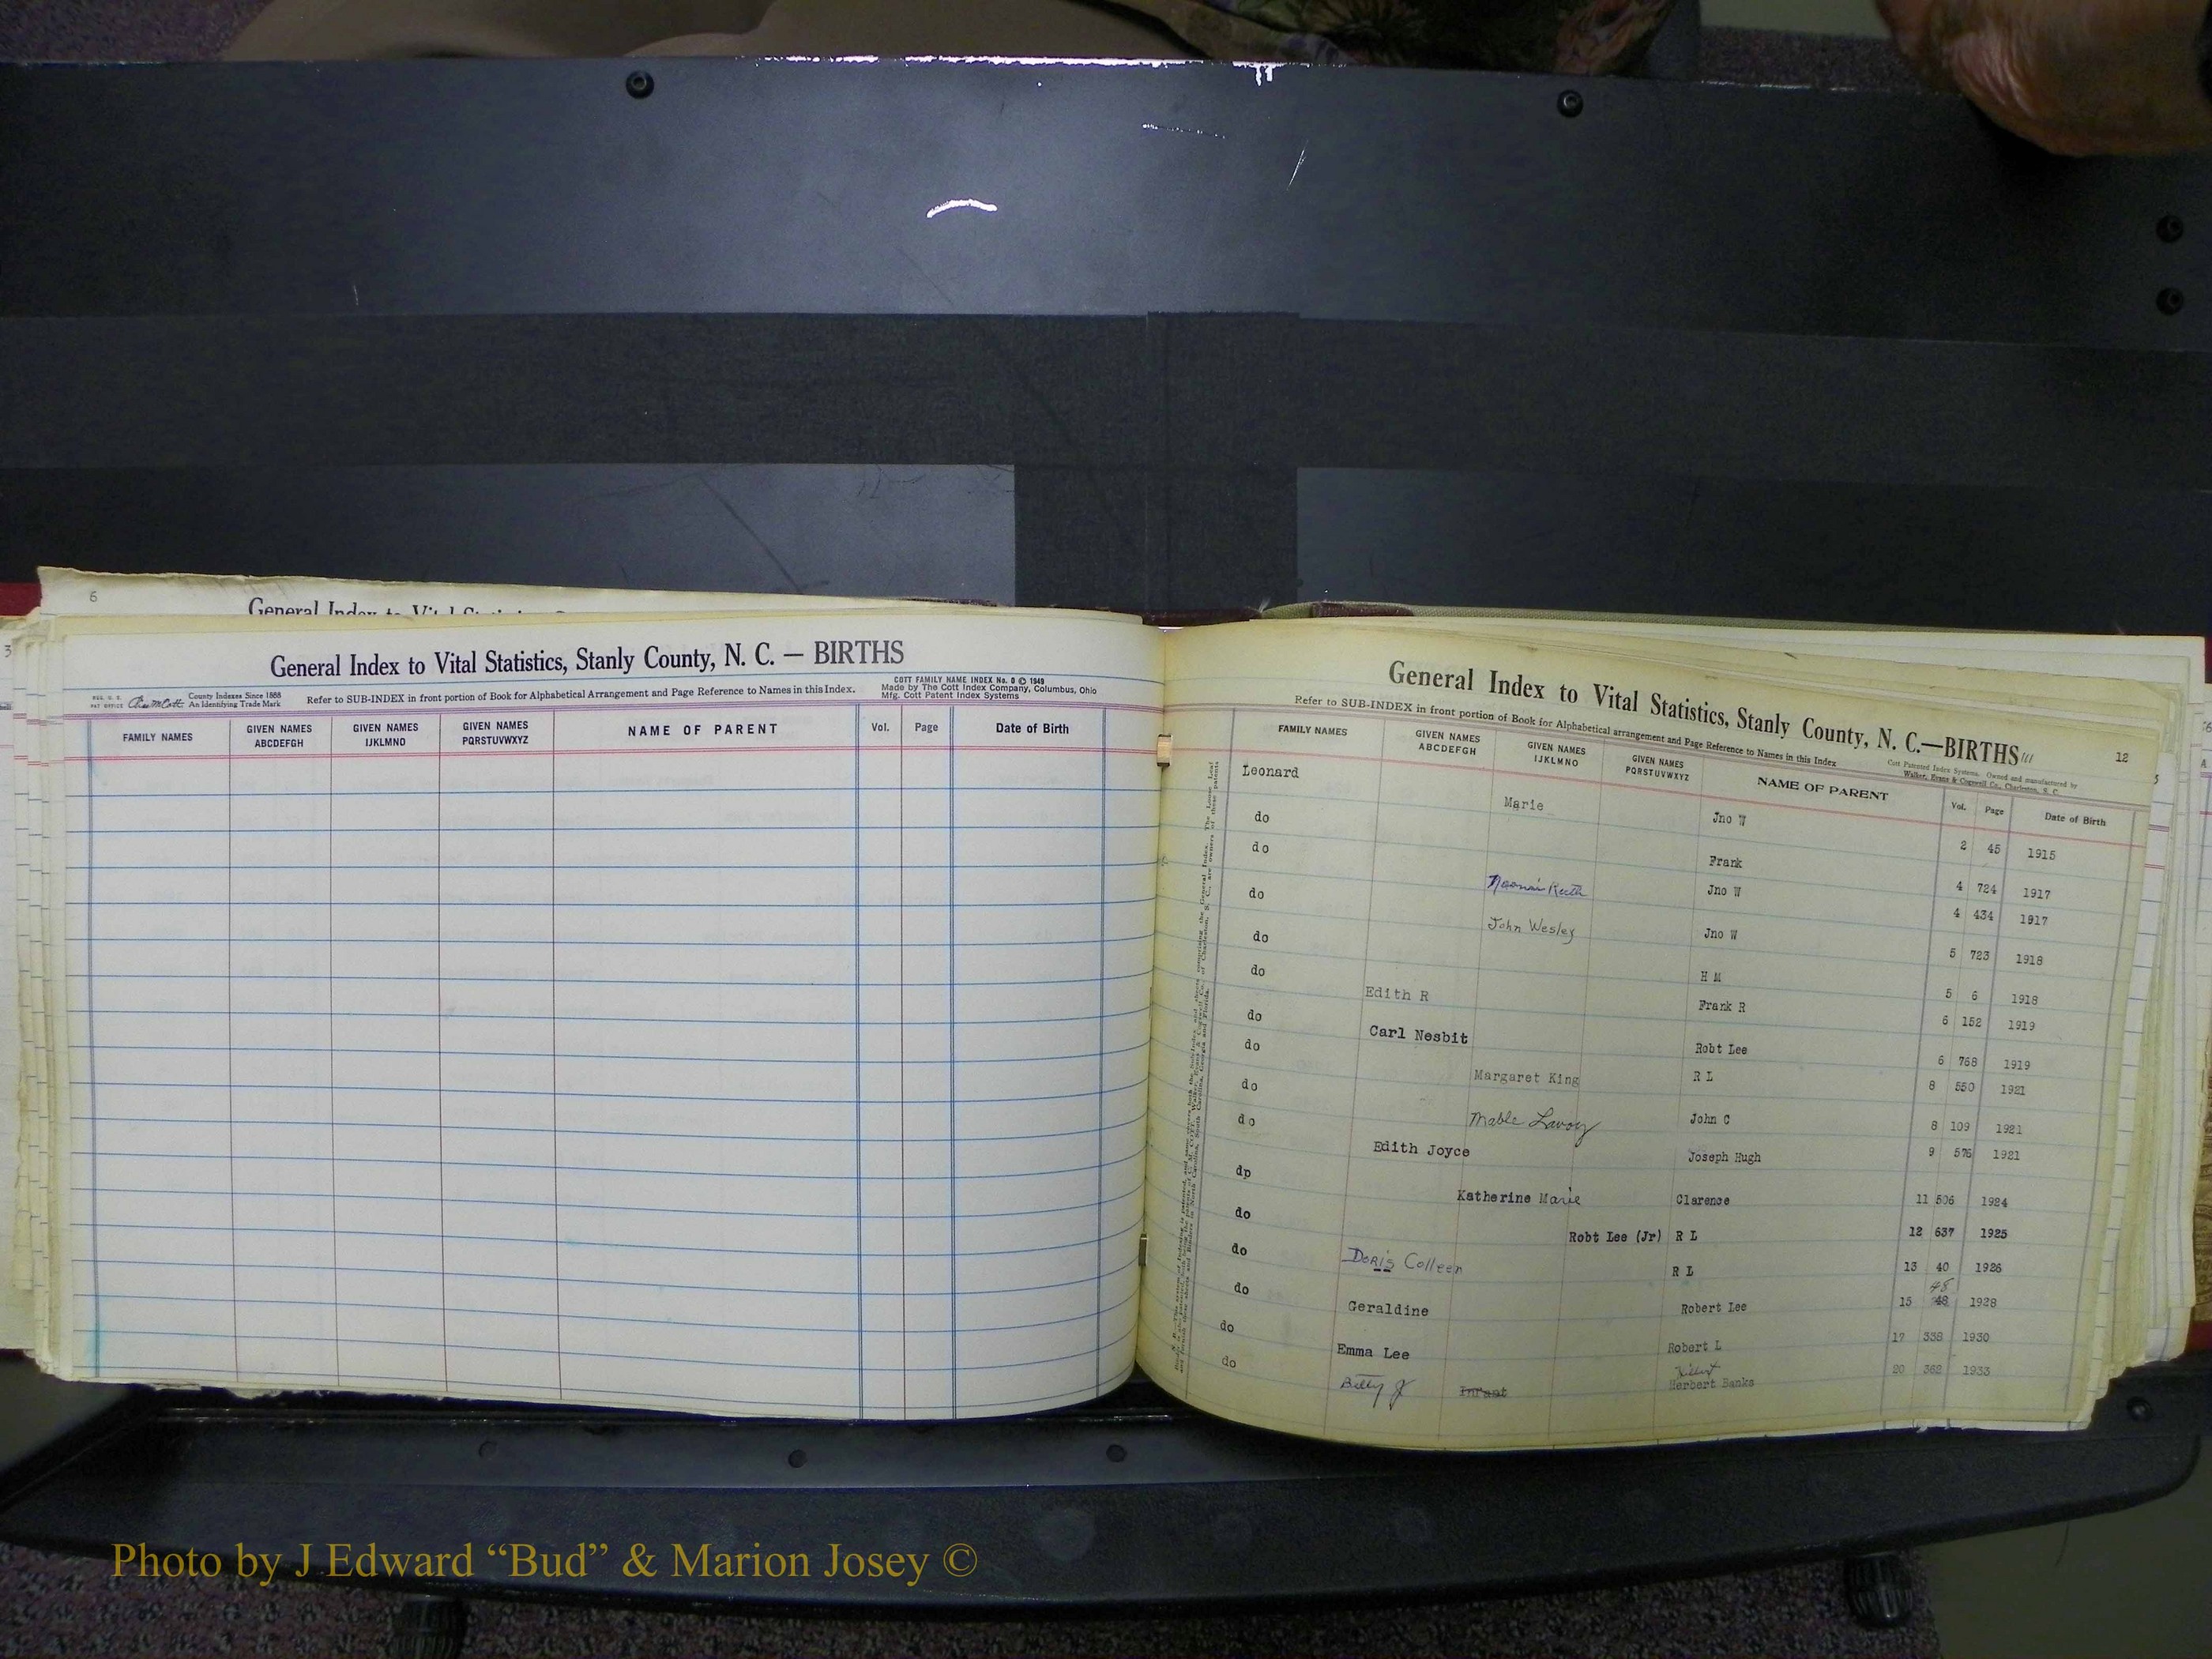 6
General Index to Vital Statistics
3
General Index to Vital Statistics, Stanly County, N. C. — BIRTHS
REG. U. S. PAT. OFFICE County Indexes Since 1888 An Identifying Trade Mark
Refer to SUB-INDEX in front portion of Book for Alphabetical Arrangement and Page Reference to Names in this Index.
COTT FAMILY NAME INDEX No. 0 © 1949
Made by The Cott Index Company, Columbus, Ohio
Mfg. Cott Patent Index Systems
FAMILY NAMES GIVEN NAMES ABCDEFGH GIVEN NAMES IJKLMNO GIVEN NAMES PQRSTUVWXYZ NAME OF PARENT Vol. Page Date of Birth
General Index to Vital Statistics, Stanly County, N. C.—BIRTHS
12
Refer to SUB-INDEX in front portion of Book for Alphabetical arrangement and Page Reference to Names in this Index
Cott Patented Index Systems. Owned and manufactured by
Walker, Evans & Cogswell Co., Charleston, S. C.
FAMILY NAMES GIVEN NAMES ABCDEFGH GIVEN NAMES IJKLMNO GIVEN NAMES PQRSTUVWXYZ NAME OF PARENT Vol. Page Date of Birth
Leonard Marie Jno W 2 45 1915
do Frank 4 724 1917
do Naomi Ruth Jno W 4 434 1917
do John Wesley Jno W 5 723 1918
do H M 5 6 1918
do Edith R Frank R 6 152 1919
do Carl Nesbit Robt Lee 6 768 1919
do Margaret King R L 8 550 1921
do Mable Lavoy John C 8 109 1921
do Edith Joyce Joseph Hugh 9 576 1921
dp Katherine Marie Clarence 11 506 1924
do Robt Lee (Jr) R L 12 637 1925
do Doris Colleen R L 13 40 1926
do Geraldine Robert Lee 15 48 48 1928
do Emma Lee Robert L 17 338 1930
do Billy J Infant Herbert Banks 20 362 1933
Photo by J Edward “Bud” & Marion Josey ©